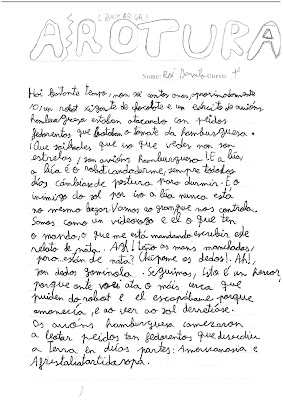 (RAMBERSA)
A ROTURA
Nome: Roi Curso: 4º
Hai bastante tempo, non sei cantos anos, aproximadamente
10, un robot xigante de chocolate e un exército de avións
hamburguesa estaban atacando con peidos
fedorentos que botaban o tomate da hamburguesa.
¡Que saibades que vos que vedes non son
estrelas, son avións hamburguesa! E a lúa,
a lúa é o robot canda dorme, sempre todos os
días cámbiase de postura para durmir. E o
inimigo do sol por iso a lúa nunca está
no mesmo lugar. Vemos un gran que nos controla.
Somos como un videoxogo e el o que ten
o mando, o que me está mandando escribir este
relato de nata. Agh! Teño as mans manchadas,
pero están de nata? Chúpome os dedos!. Ah!,
son dedos gominola. Seguimos, isto é un horror,
porque onte vin ata o máis cerca que
puiden do robot e el escapábame porque
amanecía, e ao ver ao sol derretíase.
Os avións hamburguesa comezaron
a botar peidos tan fedorentos que dividiu
a Terra en dúas partes: Americanasia e
Afristaliatartidaropa.